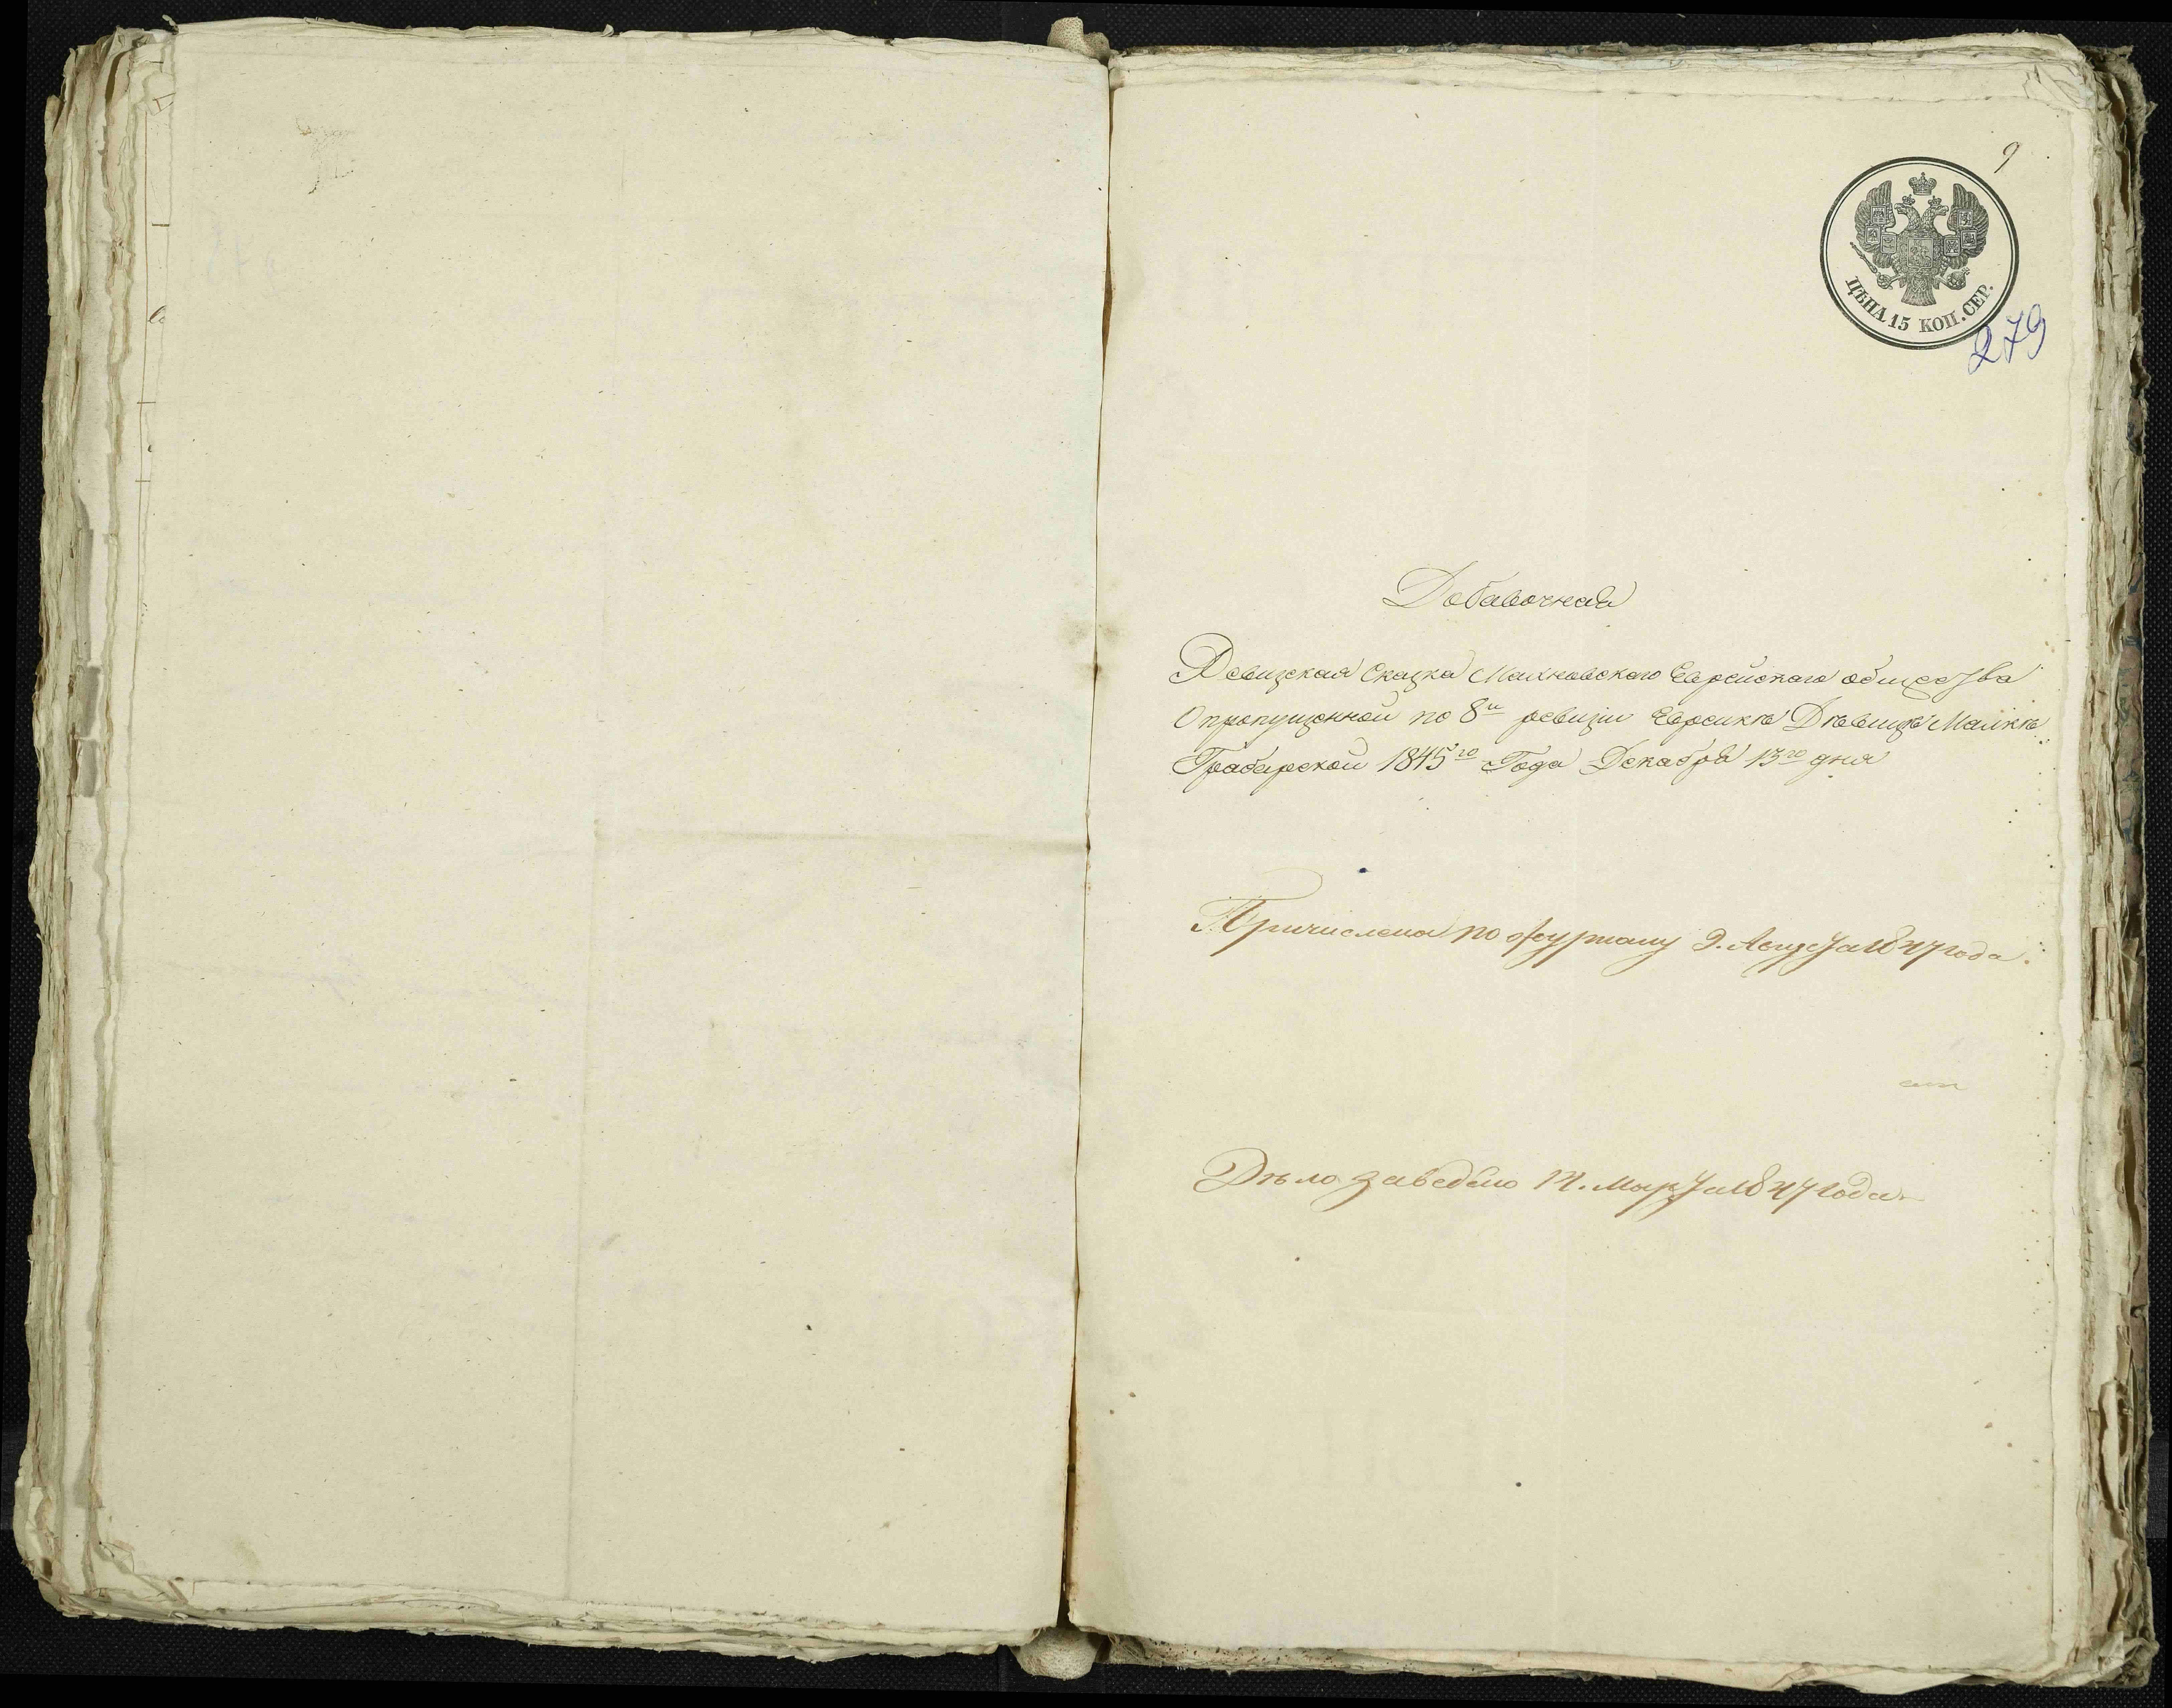 9
ЦѢНА 15 КОП. СЕР.
279
Добавочная
Ревизская Сказка Махновского Еврейского общества
О пропущенной по 8й ревизии Еврейкѣ Дѣвицѣ Малкѣ
Грабарской 1845го Года Декабря 13го дня
Причислена по журналу 9. Августа 1847 года.
Дѣло заведено 12. Марта 1847 года